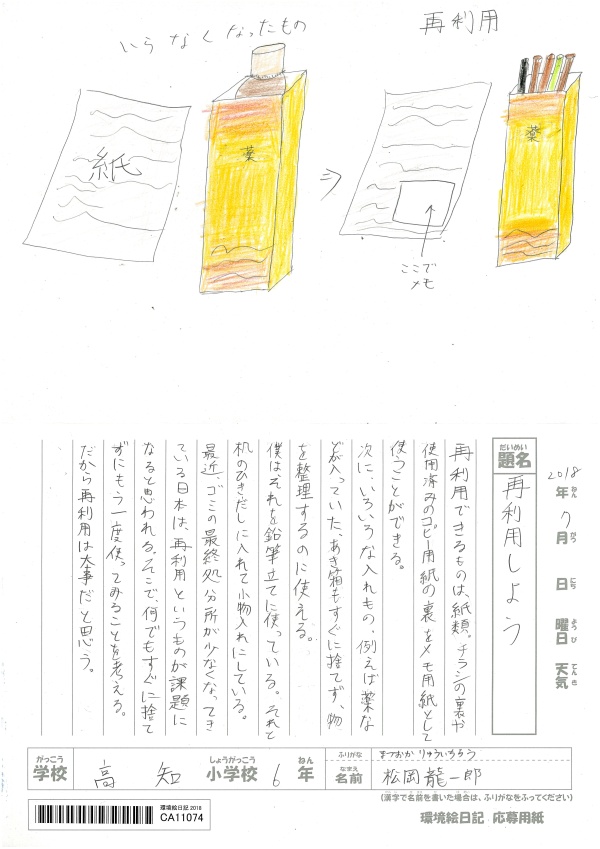 いらなくなったもの
再利用
紙
薬
薬
ここで
メモ
だいめい
題名
再利用しよう
2018
年 ねん
7
月 がつ
日 にち
曜日 ようび
天気 てんき
再利用できるものは、紙類。チラシの裏や
使用済みのコピー用紙の裏をメモ用紙として
使うことができる。
次に、いろいろな入れもの、例えば薬な
どが入っていた、あき箱もすぐに捨てず、物
を整理するのに使える。
僕はそれを鉛筆立てに使っている。それと
机のひきだしに入れて小物入れにしている。
最近、ゴミの最終処分所が少なくなってき
ている日本は、再利用というものが課題に
なると思われる。そこで、何でもすぐに捨て
ずにもう一度使ってみることを考える。
だから再利用は大事だと思う。
がっこう
学校
高知
しょうがっこう
小学校
6
ねん
年
ふりがな
まつおか りゅういちろう
なまえ
名前
松岡龍一郎
(漢字で名前を書いた場合は、ふりがなをふってください)
環境絵日記 2018
CA11074
環境絵日記 応募用紙